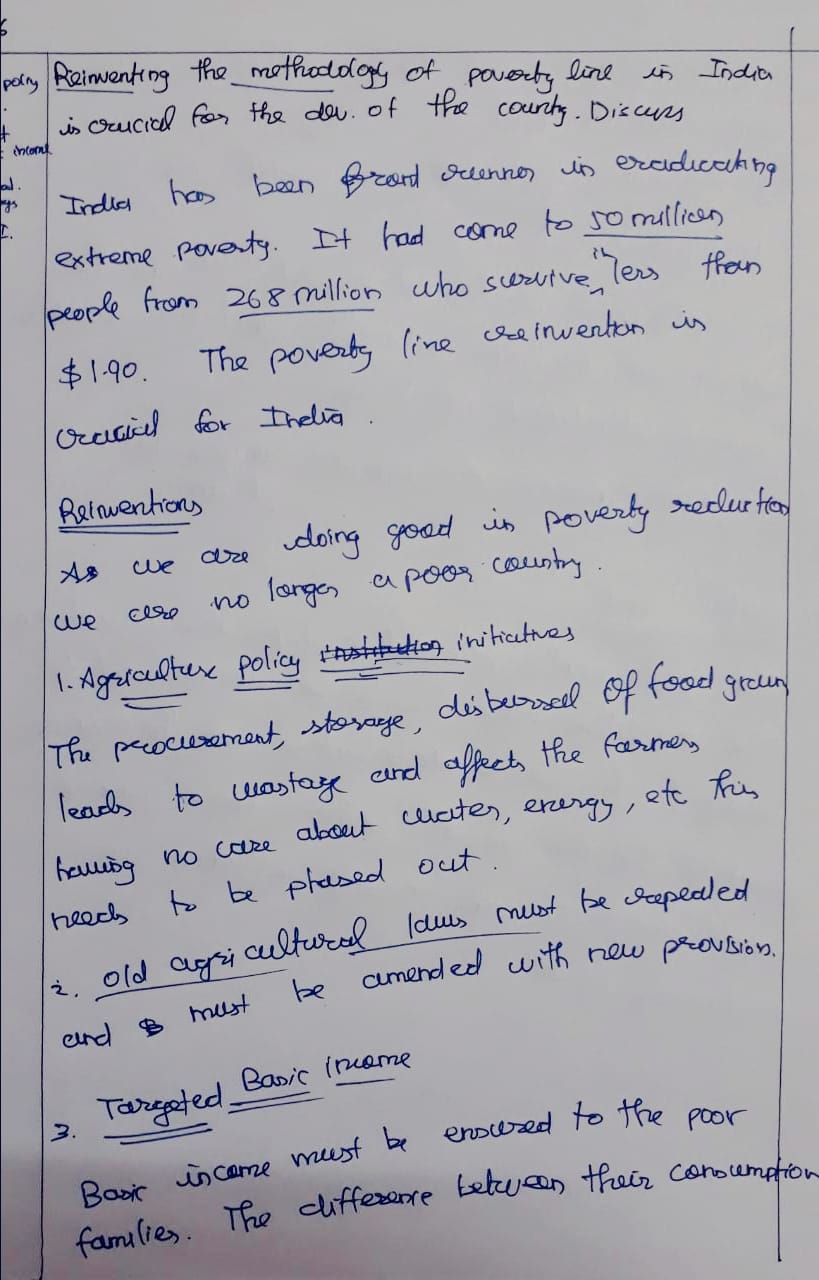 6
policy
Reinventing the methodology of poverty line in India
is crucial for the dev. of the county. Discuss
income
India has been front runner in eradicating
extreme poverty. It had come to 50 million
people from 268 million who survive in less than
$1.90. The poverty line reinvention is
crucial for India.
Reinventions
As we are doing good in poverty reduction
we are no longer a poor country.
1. Agriculture policy institution initiatives
The procurement, storage, disbursal of food grain
leads to wastage and affects the farmers
having no care about water, energy, etc this
needs to be phased out.
2. Old agricultural laws must be repealed
and must be amended with new provision.
3. Targeted Basic Income
Basic income must be ensured to the poor
families. The difference between their consumption